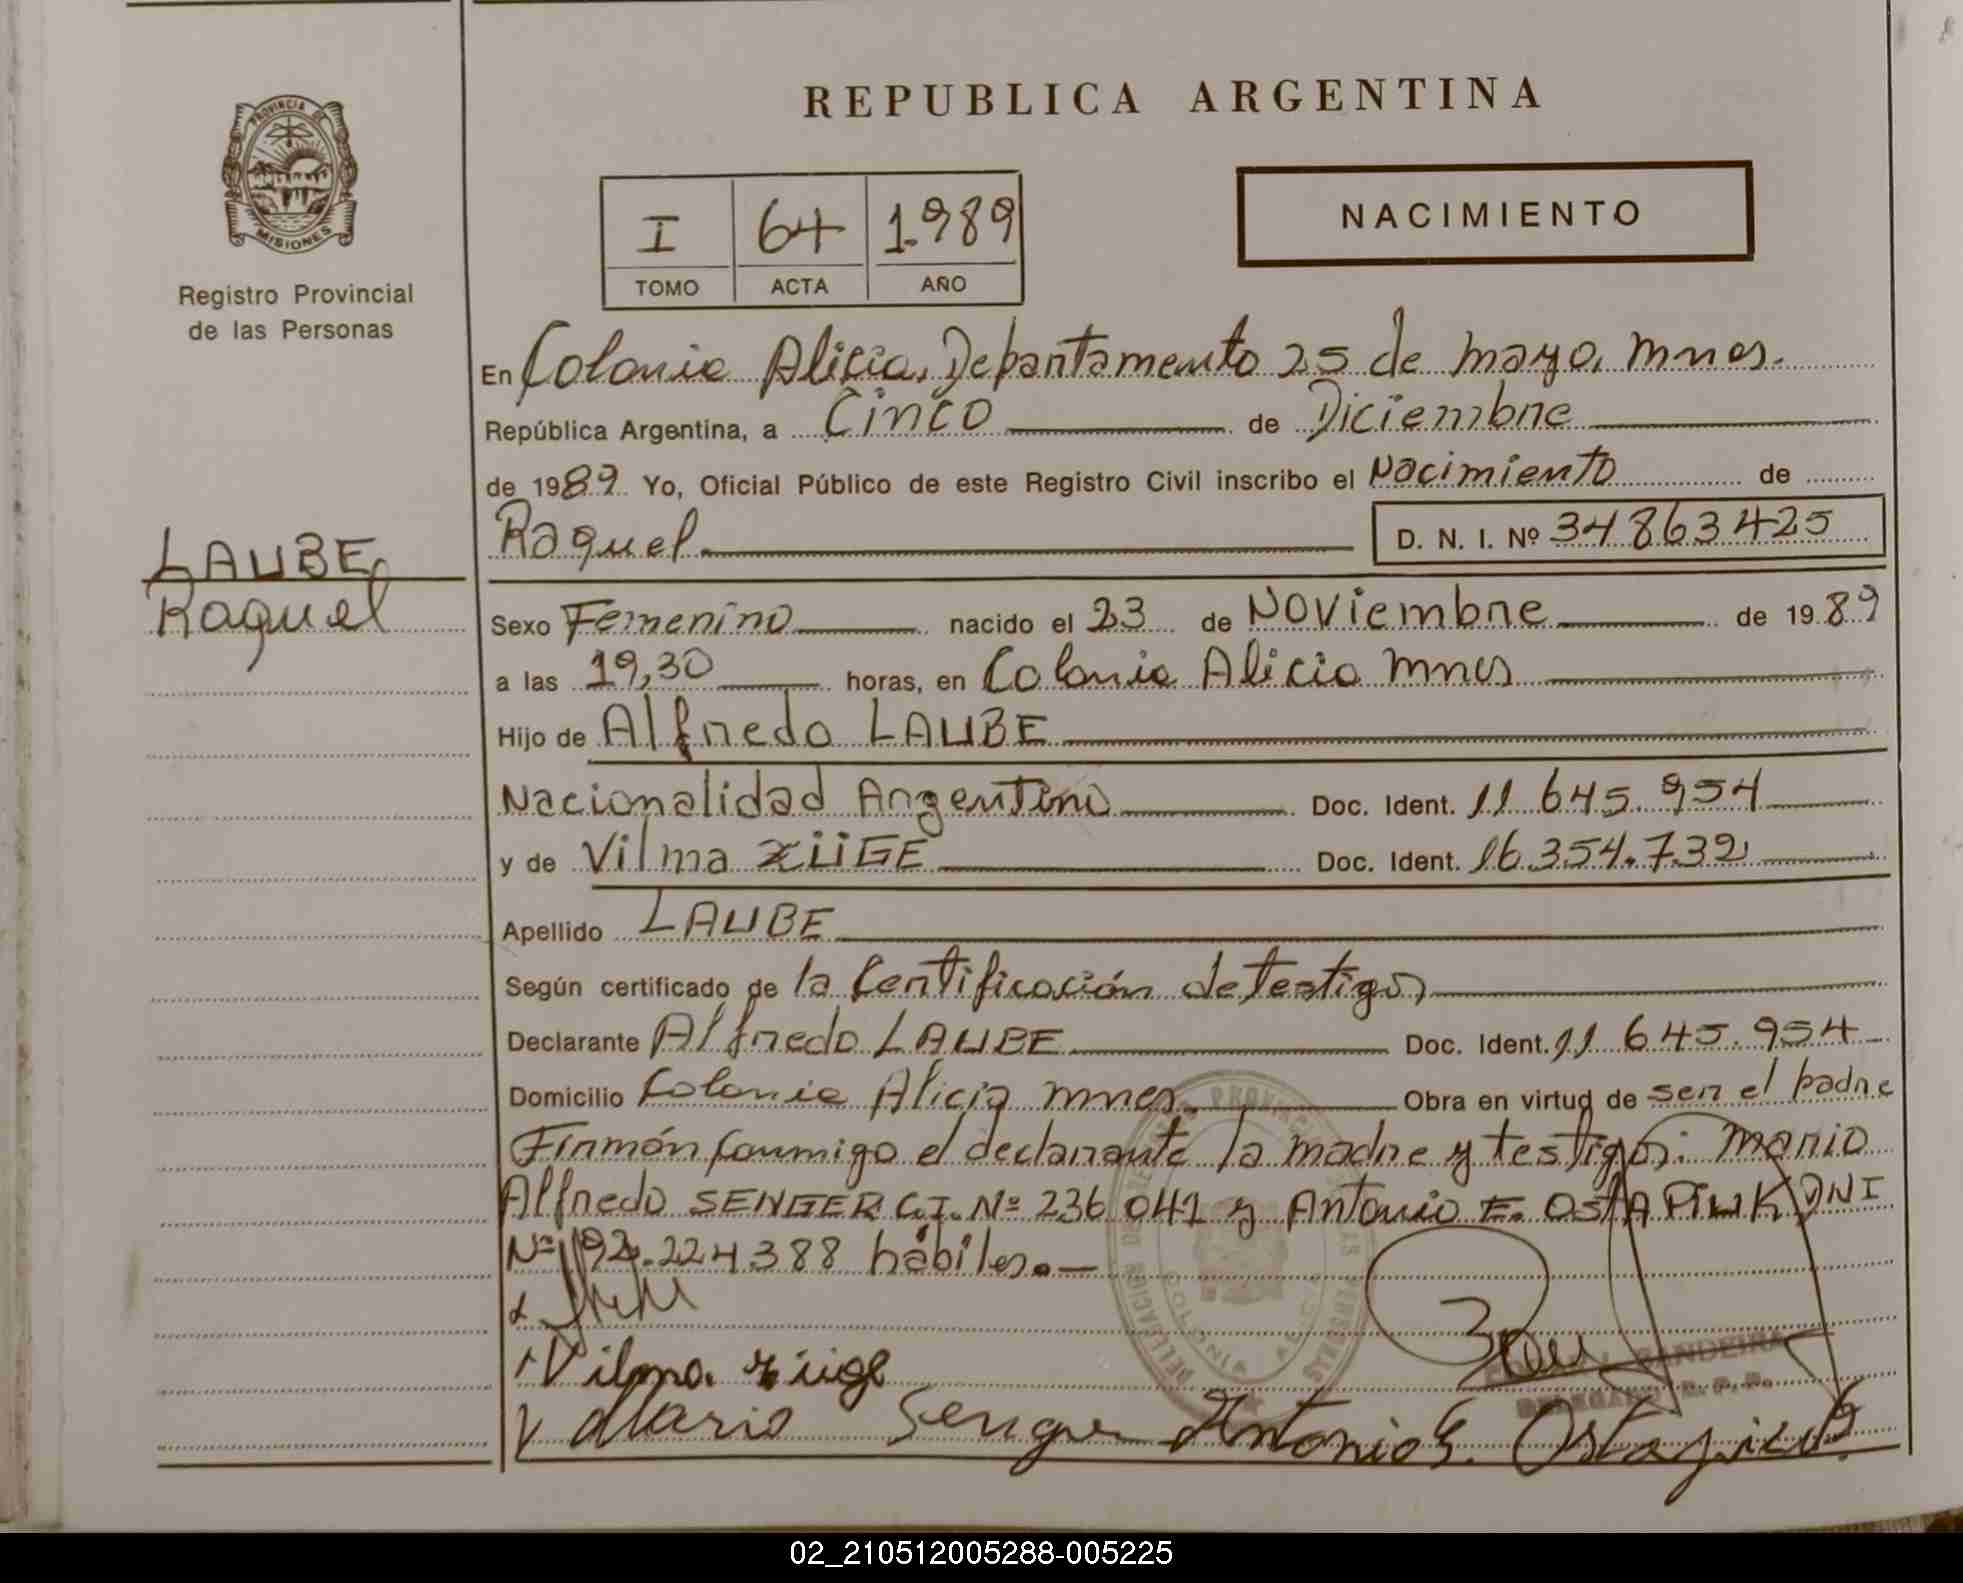 REPUBLICA ARGENTINA
PROVINCIA DE
MISIONES
Registro Provincial
de las Personas
I 64 1.989
TOMO ACTA AÑO
NACIMIENTO
En Colonia Alicia, Departamento 25 de mayo, mnes.
República Argentina, a Cinco de Diciembre
de 1989 Yo, Oficial Público de este Registro Civil inscribo el Nacimiento de
Raquel D. N. I. Nº 34863425
LAUBE,
Raquel
Sexo Femenino nacido el 23 de Noviembre de 1989
a las 19,30 horas, en Colonia Alicia mnes
Hijo de Alfredo LAUBE
Nacionalidad Argentina Doc. Ident. 11.645.954
y de Vilma XÜGE Doc. Ident. 16.354.732
Apellido LAUBE
Según certificado de la Certificación de testigos
Declarante Alfredo LAUBE Doc. Ident. 11.645.954
Domicilio Colonia Alicia mnes. Obra en virtud de ser el padre
Firmón conmigo el declarante la madre y testigos: Mario
Alfredo SENGER C.I. Nº 236041 y Antonio E. OSTAPIUK DNI
Nº 92.224.388 hábiles.—
Vilma
Mario Senger Antonio E. Ostapiuk
BANDEIRA
DELEGADO R.P.P.
02_210512005288-005225